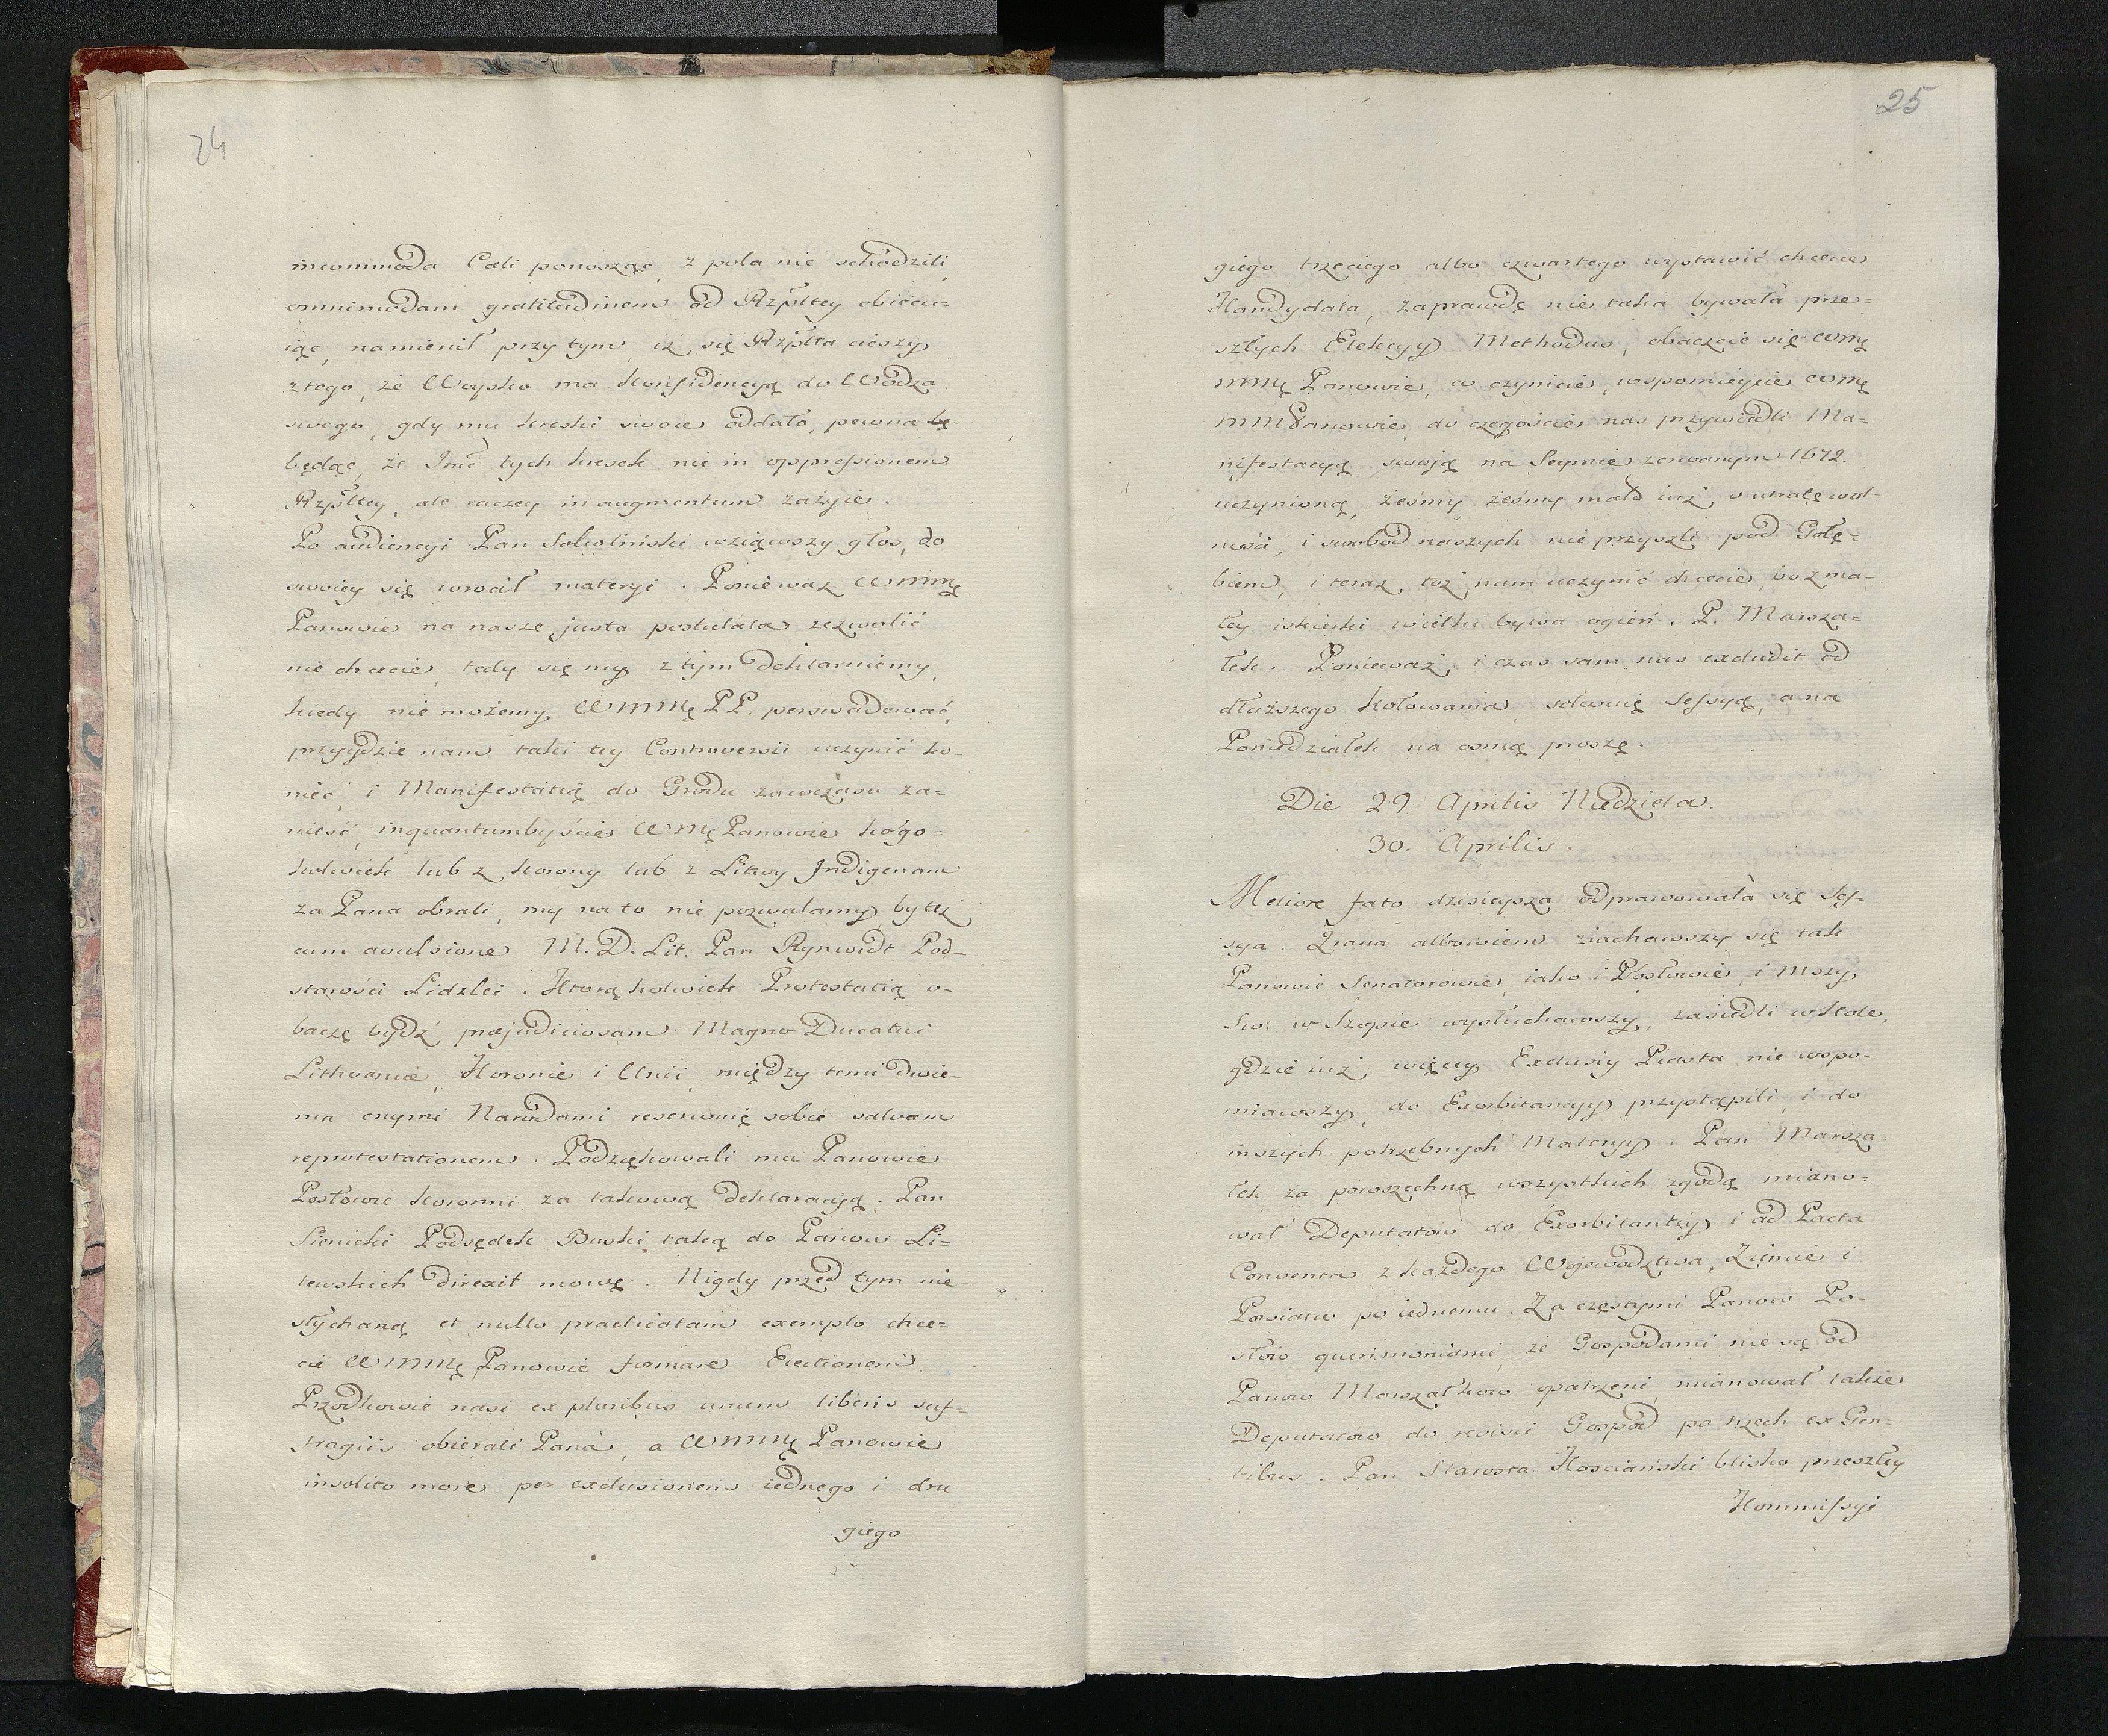 24
incommoda Cæli ponosząc, z pola nie schodzili,
omnimodam gratitudinem od Rzpltey obiecu=
iąc, namienił przy tym, iż się Rzplta cieszy
z tego, że Woysko ma konfidencyą do Wodza
swego, gdy mu kreski swoie oddało, pewna bę-
będąc, że Jmć tych kresek nie in oppressionem
Rzpltey, ale raczey in augmentum zażyie.
Po audiencyi Pan Sokoliński wziąwszy głos, do
swoiey się wrócił materyi. Ponieważ Wmmę
Panowie na nasze justa postulata zezwolić
nie chcecie, tedy się my z tym deklaruiemy,
kiedy nie możemy, Wmmę PP. perswadować,
przyydzie nam taki tey Controversii uczynić ko-
niec, i Manifestatią do Grodu zawczasu za=
nieść, inquantumbyście Wmę Panowie kogo=
kolwiek lub z Korony lub z Litwy Indigenam
za Pana obrali, my na to nie pozwalamy, by też
cum avulsione M. D. Lit. Pan Rynwidt Pod-
starości Lidzki. Którąkolwiek Protestatią o-
baczę bydź præjudiciosam Magno Ducatui
Lithvaniæ, Koronie i Unii, między temi dwie-
ma cnymi Narodami reserwuię sobie salvam
reprotestationem. Podziękowali mu Panowie
Posłowie koronni za takową deklaracyą. Pan
Sienicki Podsędek Buski taką do Panow Li=
tewskich direxit mowę. Nigdy przed tym nie
słychaną et nullo practicatam exemplo chce=
cie Wmmę Panowie formare Electionem.
Przodkowie nasi ex pluribus unum liberis suf=
fragiis obierali Pana, a Wmmę Panowie
insolito more per exclusionem iednego i dru
giego
25
giego trzeciego albo czwartego wystawić chcecie
Kandydata, zaprawdę nie taka bywała prze=
szłych Elekcyy Methodus, obaczcie się Wmę
mmę Panowie, co czynicie, wspomniycie Wmę
mmPanowie, do czegoście nas przywiedli Ma-
nifestacyą swoją na Seymie zerwanym 1672.
uczynioną, żeśmy żeśmy mało iuż o utratę wol-
ności, i swobod naszych nie przyszli pod Gołę-
biem, i teraz toż nam uczynić chcecie, bo z ma-
łey iskierki wielki bywa ogień. P. Marsza=
łek. Ponieważ i czas sam nas excludit od
dłuższego kołowania, solwuię sessyą, a na
Poniedziałek na osmą proszę.
Die 29 Aprilis Niedziela.
30. Aprilis.
Meliore fato dzisieysza odprawowała się Ses-
sya. Zrana albowiem ziachawszy się tak
Panowie Senatorowie, iako i Posłowie, i Mszy
Sw: w Szopie wysłuchawszy, zasiedli w Kole,
gdzie iuż więcey Exclusiy Piasta nie wspo-
miawszy, do Exorbitancyy przystąpili, i do
inszych potrzebnych Materyy. Pan Marsza-
łek za powszechną wszystkich zgodą miano=
wał Deputatow do Exorbitantiy i ad Pacta
Conventa z każdego Wojewodztwa, Ziemie i
Powiatu po iednemu. Za częstymi Panow Po-
słow querimoniami, że Gospodami nie są od
Panow Marszałkow opatrzeni, mianował także
Deputatow do rewisii Gospod po trzech ex Gen-
tibus. Pan Starosta Kościański blisko przeszłey
Kommissyi